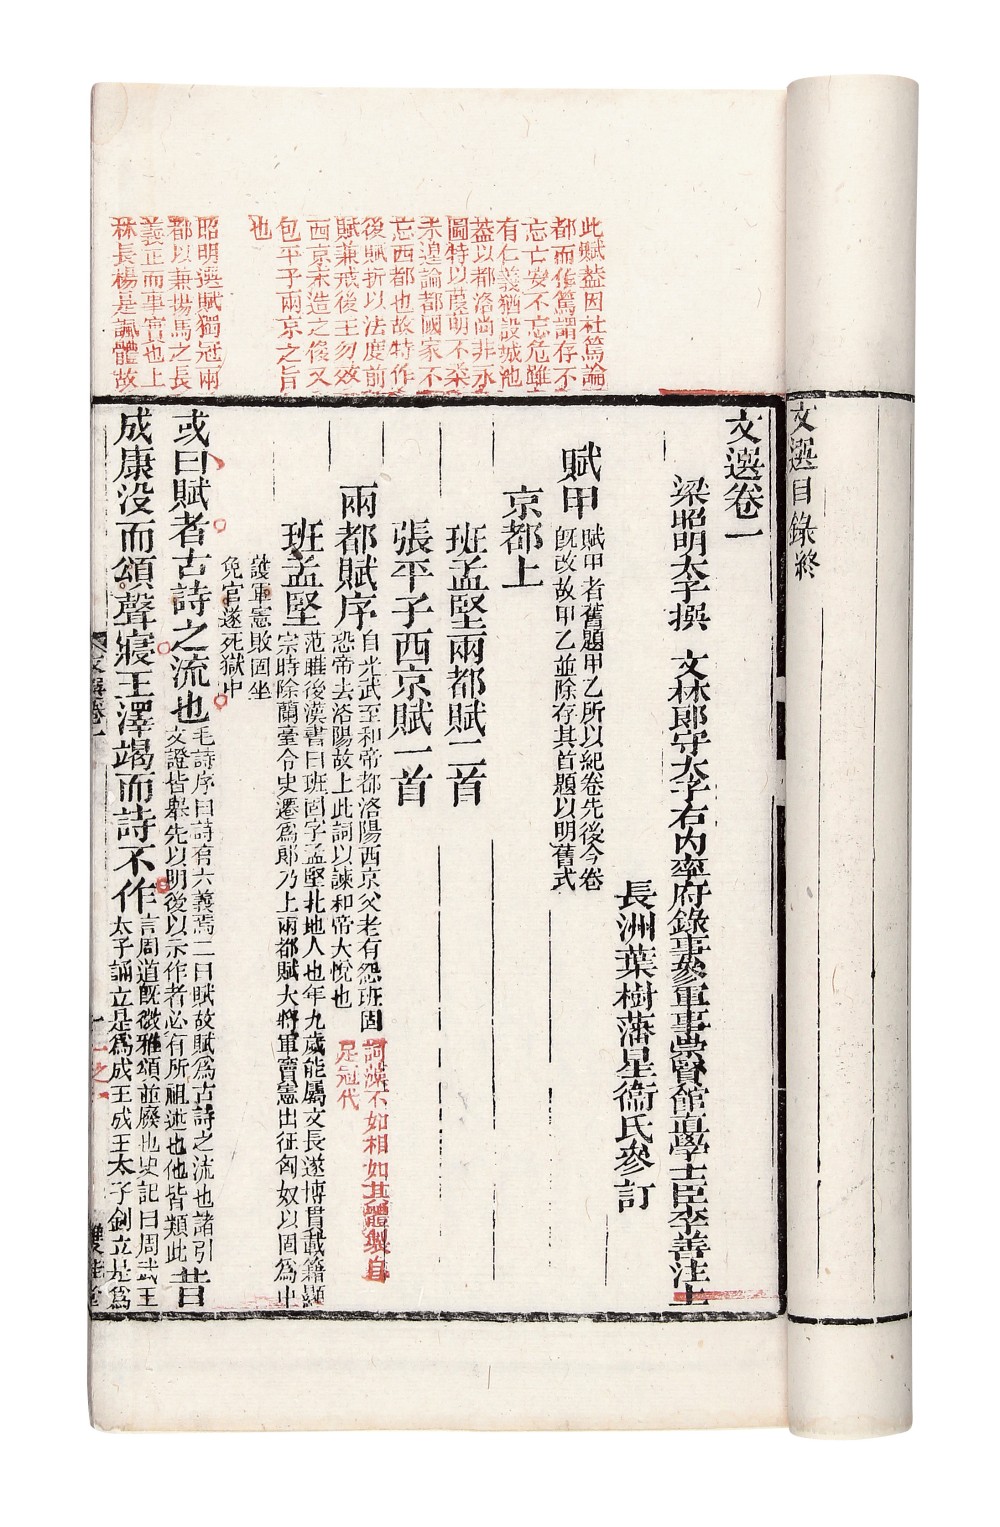 文選目錄終
文選卷一
梁昭明太子撰 文林郎守太子右內率府錄事參軍事崇賢館直學士臣李善注上
長洲葉樹藩星衞氏參訂
賦甲 賦甲者舊題甲乙所以紀卷先後今卷
既改故甲乙並除存其首題以明舊式
京都上
班孟堅兩都賦二首
張平子西京賦一首
兩都賦序 自光武至和帝都洛陽西京父老有怨班固
恐帝去洛陽故上此詞以諫和帝大悅也
詞藻不如相如其體製自
足冠代
班孟堅 范雎後漢書曰班固字孟堅北地人也年九歲能屬文長遂博貫載籍顯
宗時除蘭臺令史遷爲郎乃上兩都賦大將軍竇憲出征匈奴以固爲中
護軍憲敗固坐
免官遂死獄中
或曰賦者古詩之流也 毛詩序曰詩有六義焉二曰賦故賦爲古詩之流也諸引
文證皆舉先以明後以示作者必有所祖述也他皆類此
昔
成康没而頌聲寢王澤竭而詩不作 言周道既微雅頌並廢也史記曰周武王
太子誦立是爲成王成王太子釗立是爲
此賦葢因杜篤論
都而作篤謂存不
忘亡安不忘危雖
有仁義猶設城池
葢以都洛尚非永
圖特以葭萌不柔
未遑論都國家不
忘西都也故特作
後賦折以法度前
賦兼戒後王勿效
西京末造之侈又
包平子兩京之旨
也
昭明選賦獨冠兩
都以兼揚馬之長
義正而事實也上
林長楊是諷體故
文選卷一